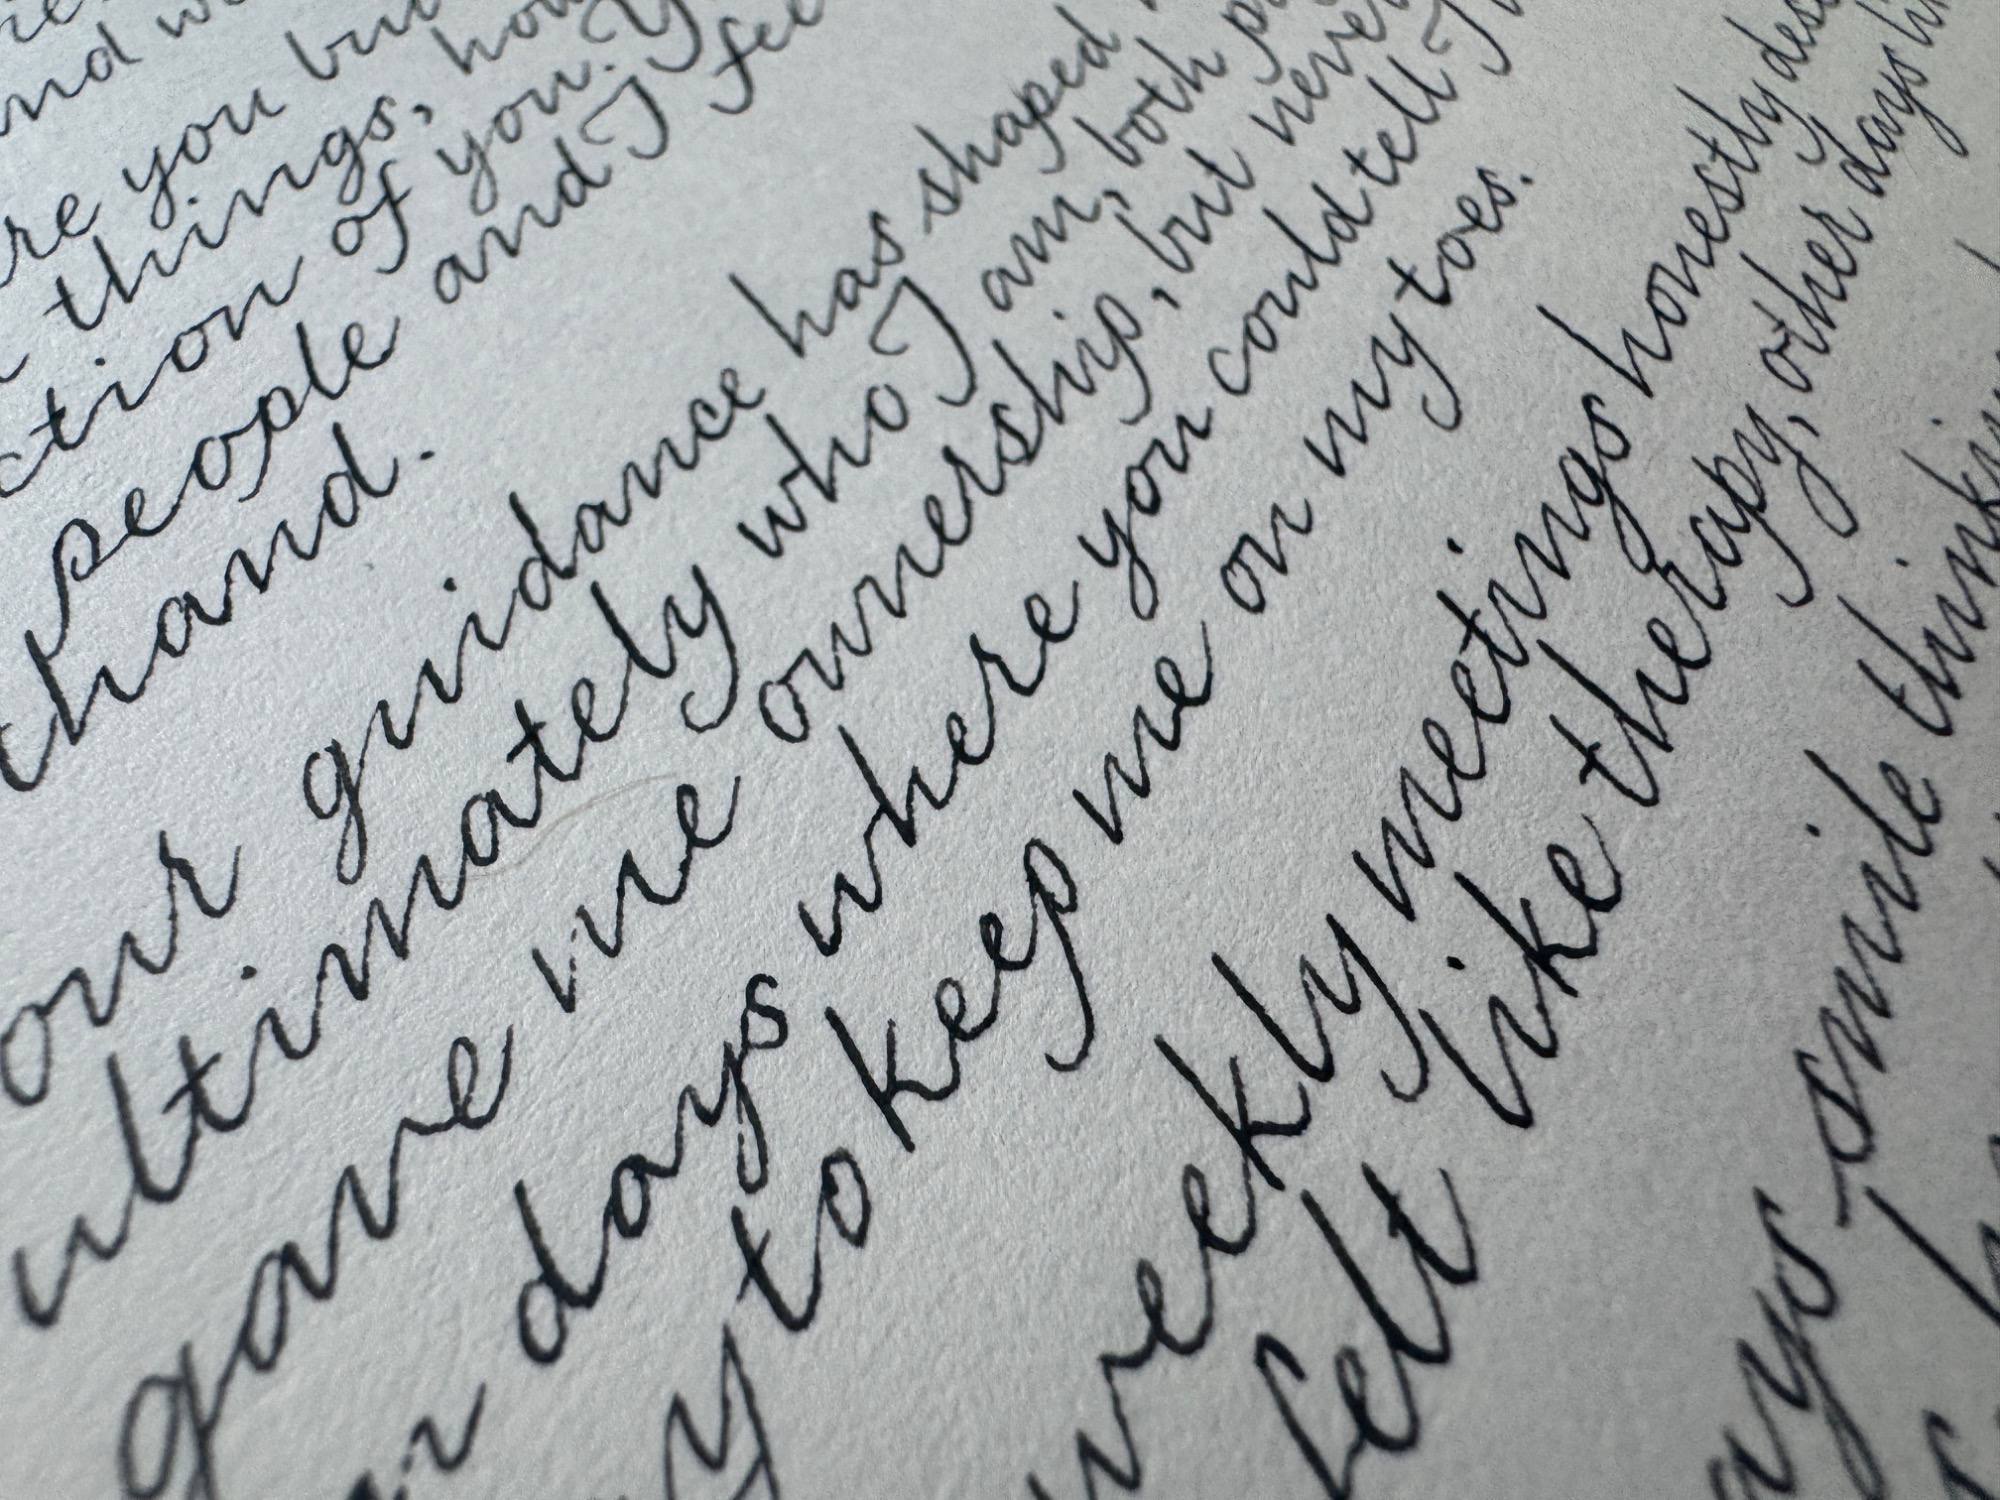 and
you but
things, how
of you. Y
people and I fee
hand.
our guidance has shaped
ultimately who I am, both
gave me ownership, but never
days where you could tell I
to keep me on my toes.
weekly meetings honestly
felt like therapy, other days
smile